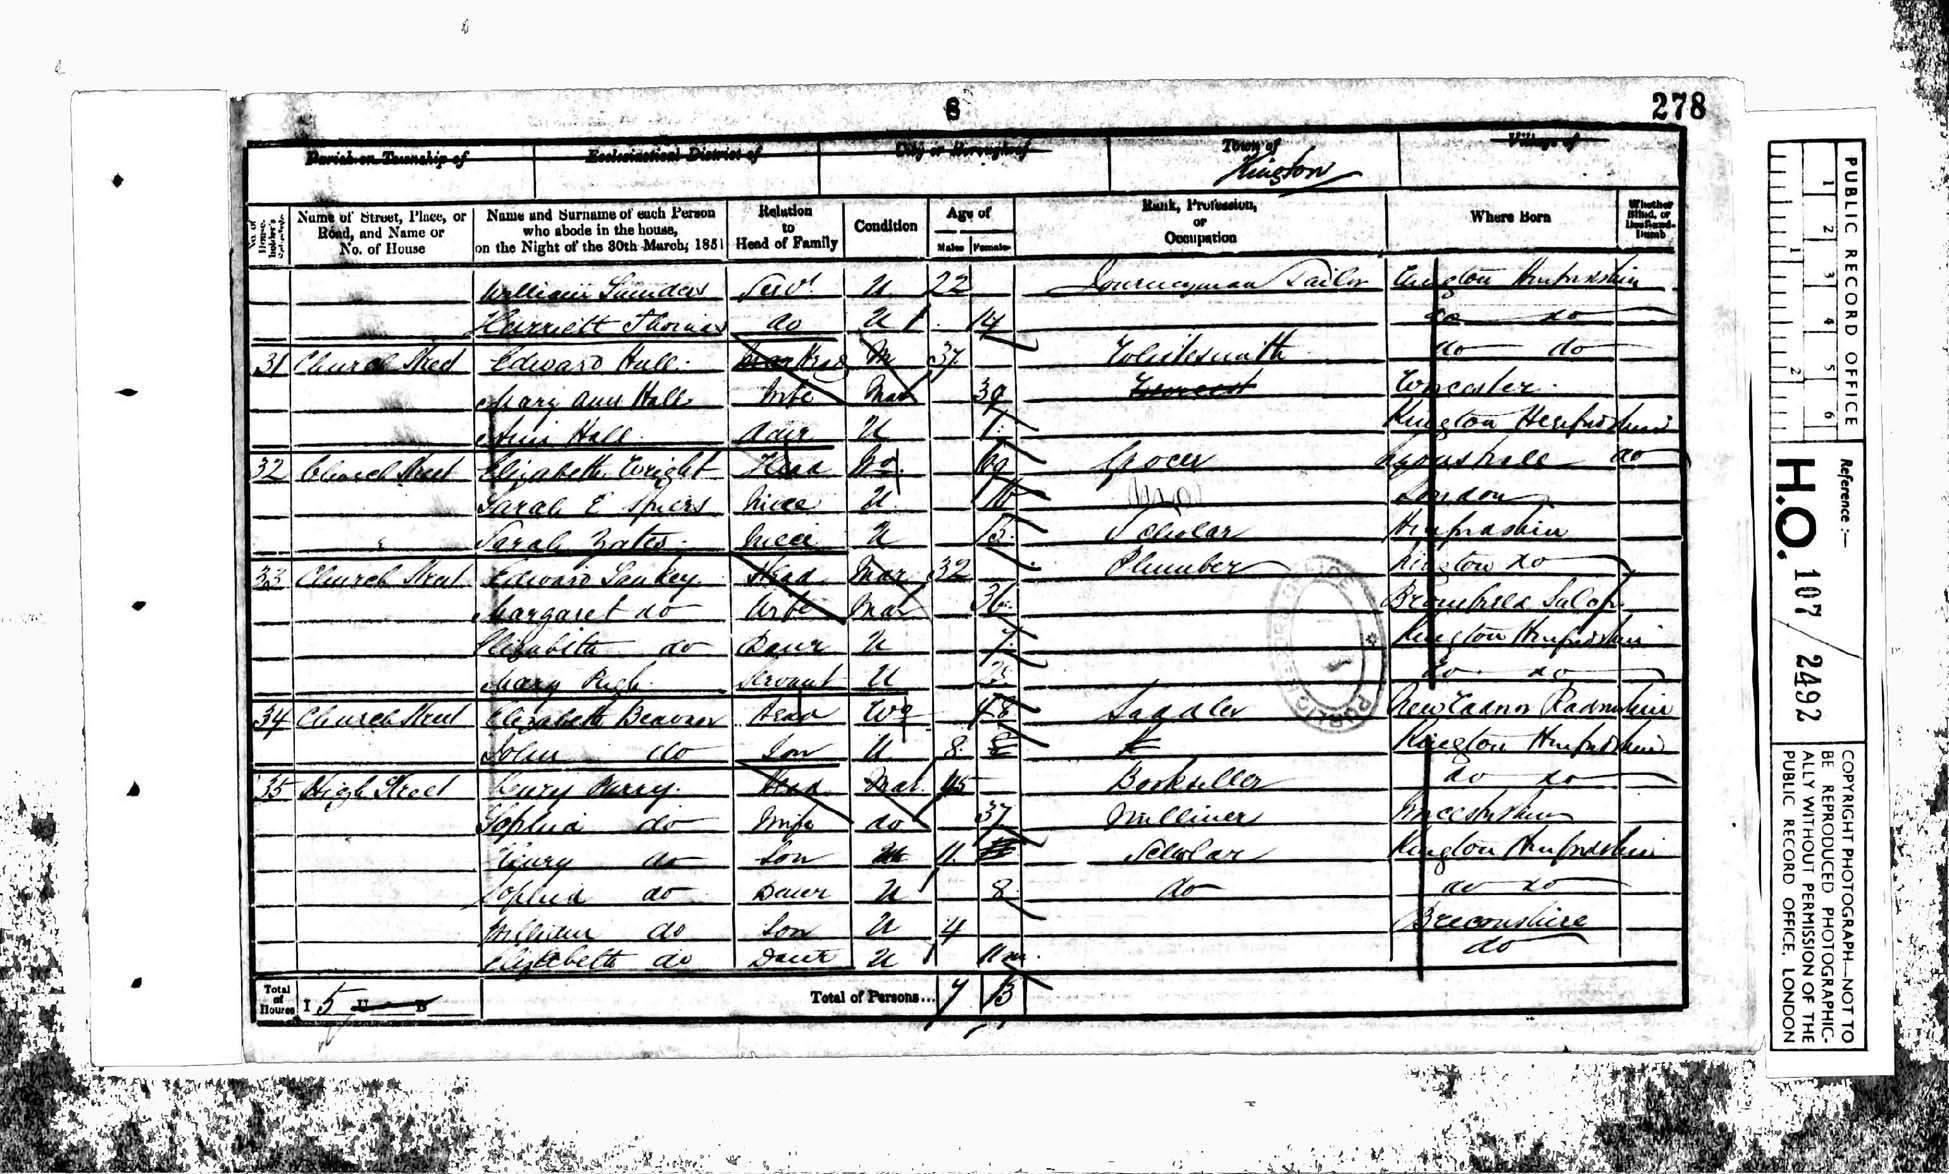 8
278
Parish or Township of Ecclesiastical District of City or Borough of Town of Village of
Kington
No. of House-holder's Schedule Name of Street, Place, or Road, and Name or No. of House Name and Surname of each Person who abode in the house, on the Night of the 30th March, 1851 Relation to Head of Family Condition Age of Males Females Rank, Profession, or Occupation Where Born Whether Blind, or Deaf-and-Dumb
William Saunders Servt U 22 Journeyman Tailor Kington Herefordshire
Harriett Thomas do U do do
31 Church Street Edward Hall Head M 37 Whitesmith do do
Mary Ann Hall Wife Mar 39 Worcester
Ann Hall Daur U 1 Kington Herefordshire
32 Church Street Elizabeth Wright Head 69 Grocer Lyonshall do
Sarah E Spiers Niece U 16 London
Sarah Yates Niece U 13 Scholar Herefordshire
33 Church Street Edward Sankey Head Mar 32 Plumber Kington do
Margaret do Wife Mar 36 Bromfield Salop
Elizabeth do Daur U 7 Kington Herefordshire
Mary Pugh Servant U 23 do do
34 Church Street Elizabeth Beavan Head 48 Saddler New Radnor Radnorshire
John do Son U 8 Kington Herefordshire
35 High Street Henry Parry Head Mar 45 Bookseller do do
Sophia do Wife do 37 Milliner Worcestershire
Henry do Son U 11 Scholar Kington Herefordshire
Sophia do Daur U 8 do do do
William do Son U 4 Breconshire
Elizabeth do Daur U 11 m. do
Total of Houses I 5 U B Total of Persons... 7 13
PUBLIC RECORD OFFICE
1 2 3 4 5 6
1 2
Reference :—
H.O. 107/2492
COPYRIGHT PHOTOGRAPH—NOT TO BE REPRODUCED PHOTOGRAPHIC-
ALLY WITHOUT PERMISSION OF THE
PUBLIC RECORD OFFICE, LONDON